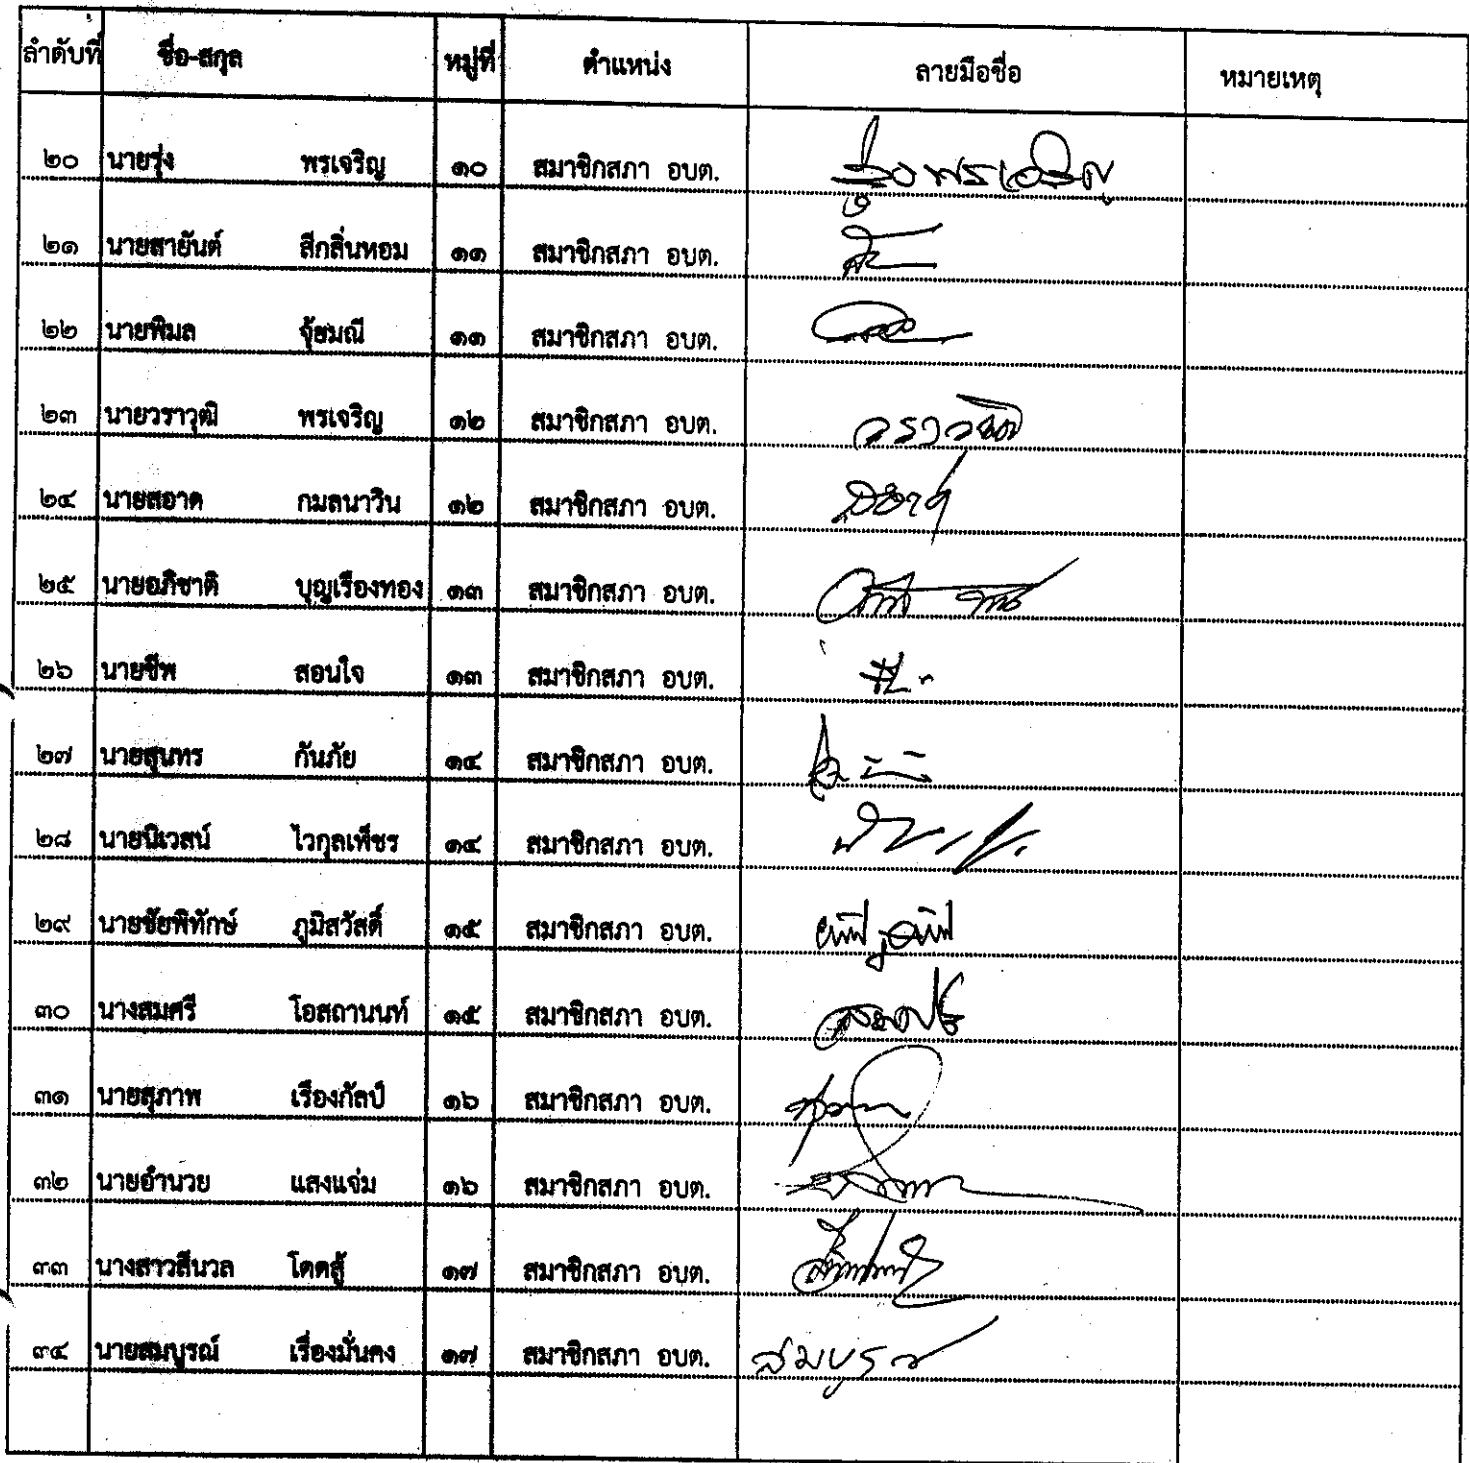 ลำดับที่ ชื่อ-สกุล หมู่ที่ ตำแหน่ง ลายมือชื่อ หมายเหตุ
๒๐ นายรุ่ง พรเจริญ ๑๐ สมาชิกสภา อบต. รุ่ง พรเจริญ
๒๑ นายสายันต์ สีกลิ่นหอม ๑๑ สมาชิกสภา อบต.
๒๒ นายพิมล จุ้ยมณี ๑๑ สมาชิกสภา อบต.
๒๓ นายวราวุฒิ พรเจริญ ๑๒ สมาชิกสภา อบต. วราวุฒิ
๒๔ นายสอาด กมลนาวิน ๑๒ สมาชิกสภา อบต. สอาด
๒๕ นายอภิชาติ บุญเรืองทอง ๑๓ สมาชิกสภา อบต.
๒๖ นายชีพ สอนใจ ๑๓ สมาชิกสภา อบต.
๒๗ นายสุนทร กันภัย ๑๔ สมาชิกสภา อบต.
๒๘ นายนิเวสน์ ไวกูลเพ็ชร ๑๔ สมาชิกสภา อบต.
๒๙ นายชัยพิทักษ์ ภูมิสวัสดิ์ ๑๕ สมาชิกสภา อบต.
๓๐ นางสมศรี โอสถานนท์ ๑๕ สมาชิกสภา อบต.
๓๑ นายสุภาพ เรืองกัลป์ ๑๖ สมาชิกสภา อบต.
๓๒ นายอำนวย แสงแจ่ม ๑๖ สมาชิกสภา อบต.
๓๓ นางสาวสีนวล โตคสู้ ๑๗ สมาชิกสภา อบต.
๓๔ นายสมบูรณ์ เรืองมั่นคง ๑๗ สมาชิกสภา อบต. สมบูรณ์